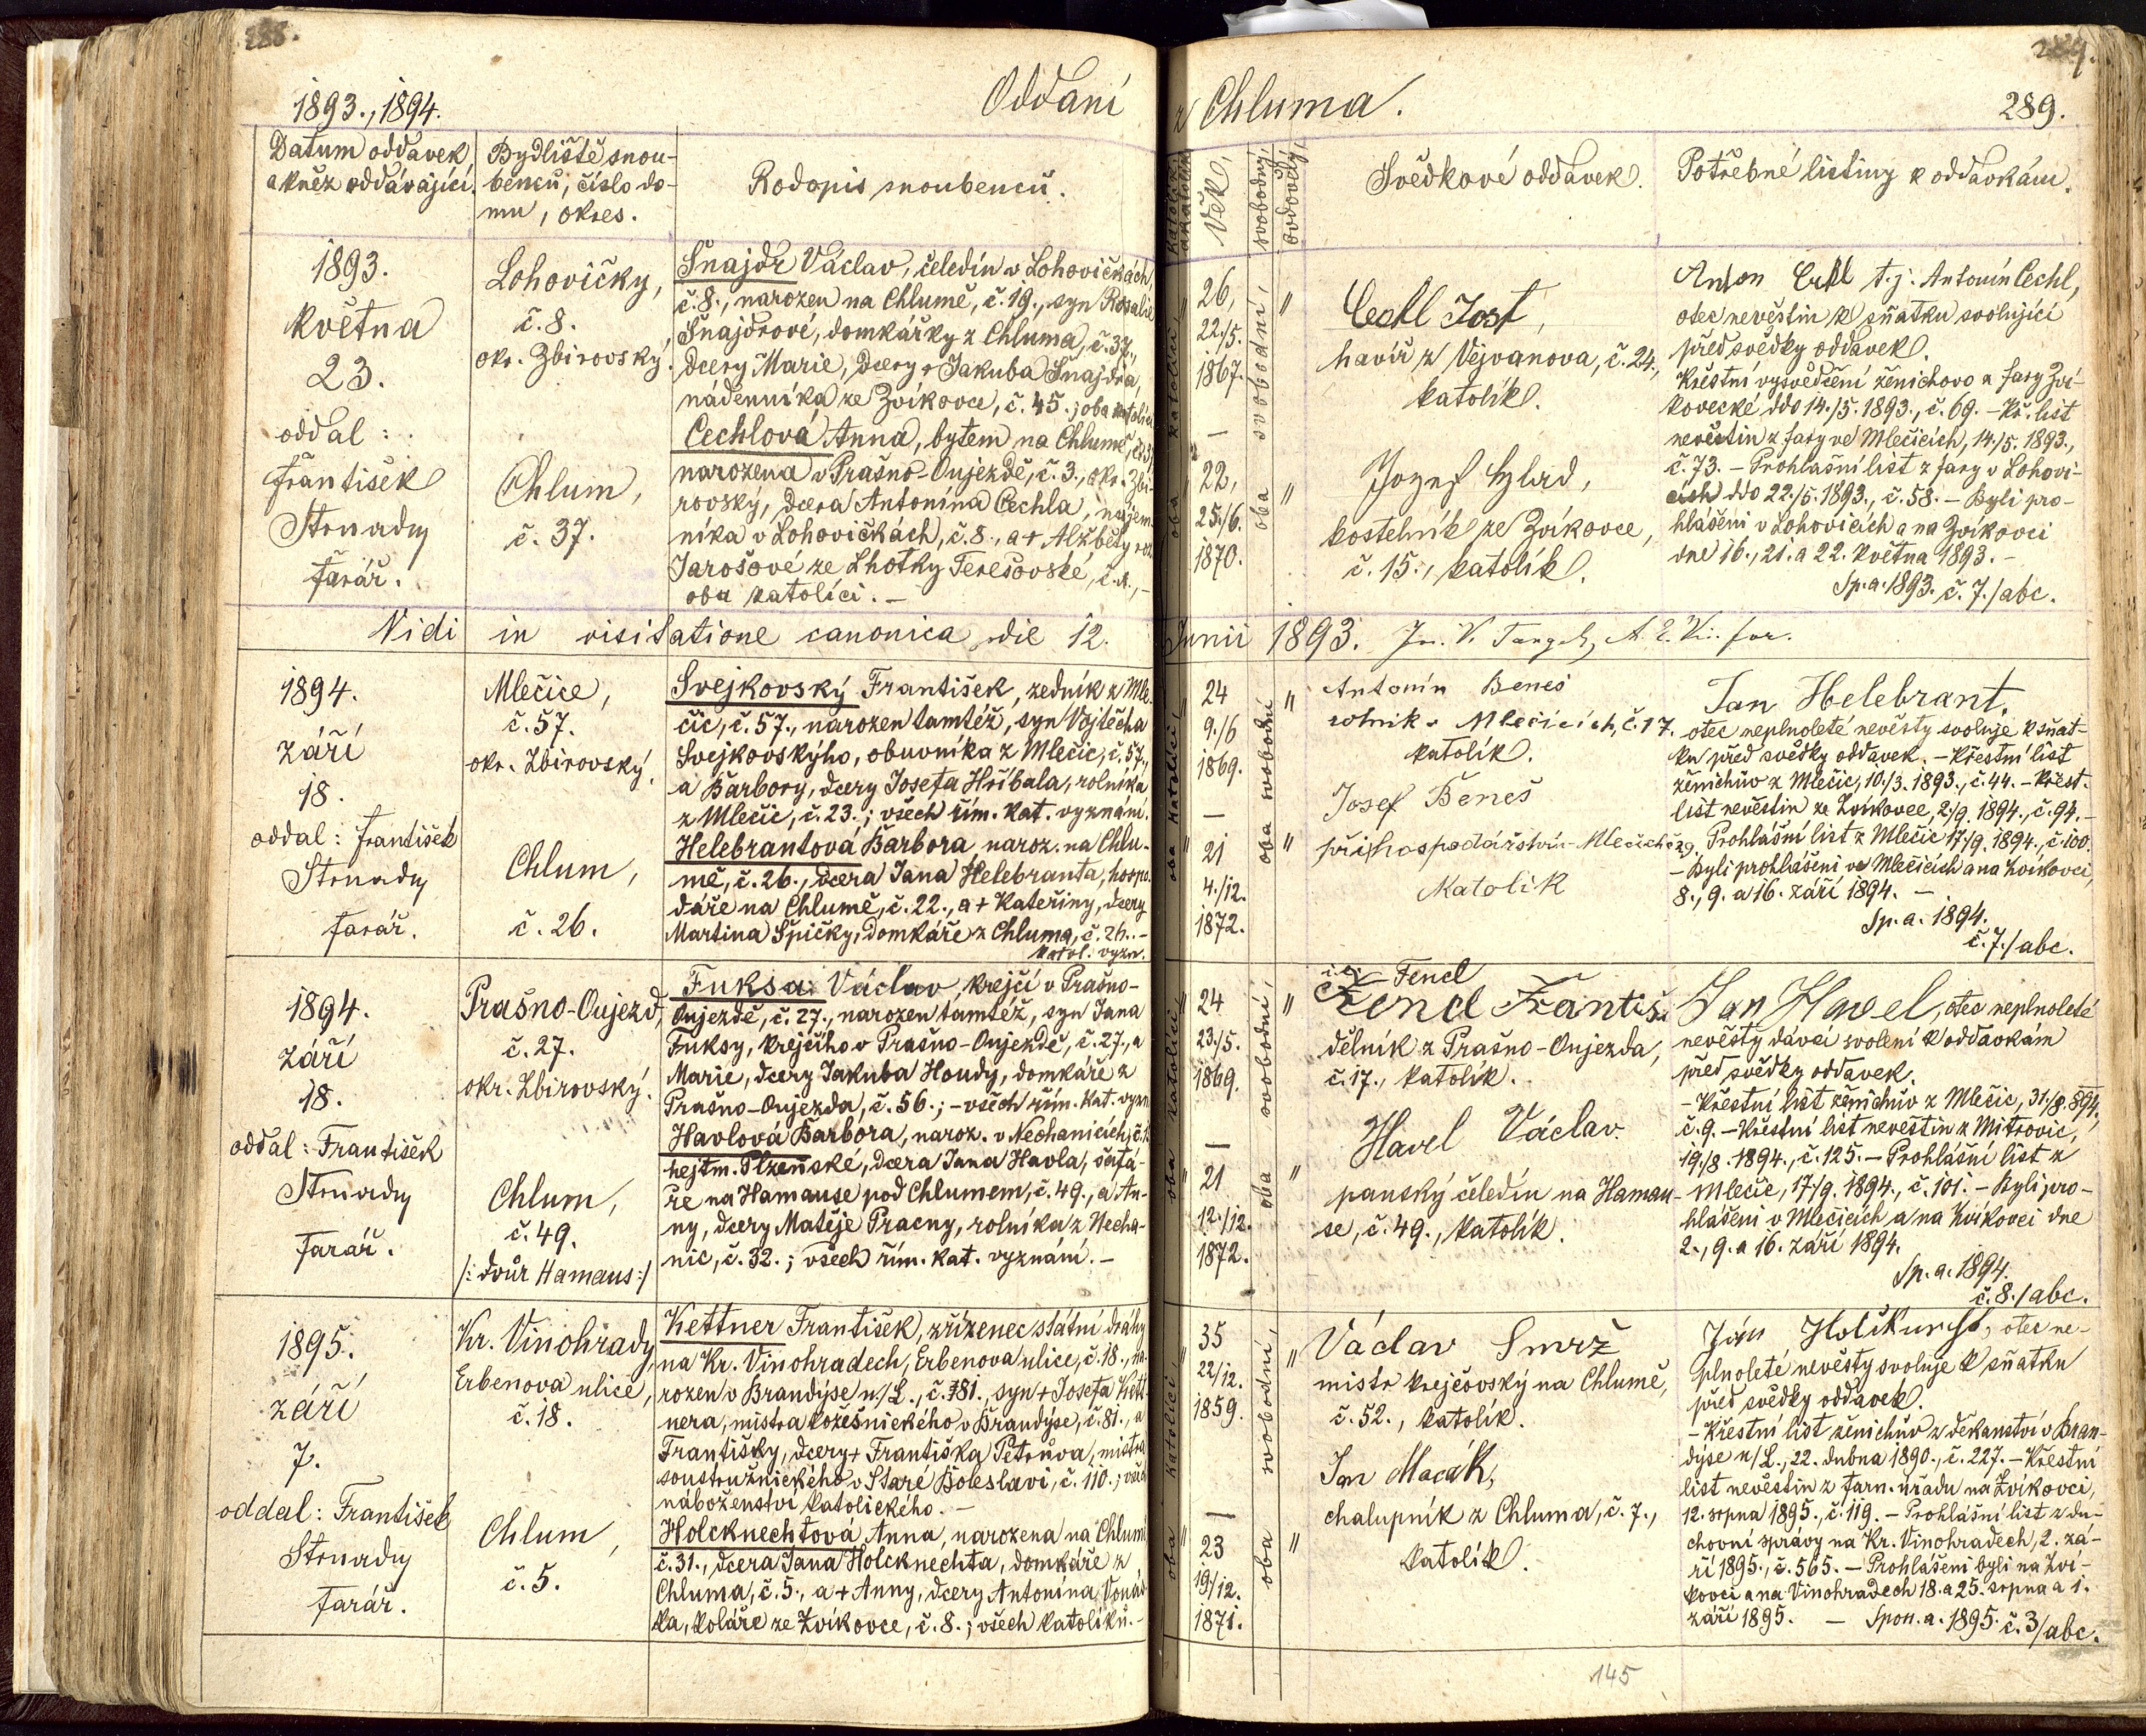 288.
1893., 1894.
Oddaní
Datum oddavek
a kněz oddávající.
Bydliště snou-
benců, číslo do-
mu, okres.
Rodopis snoubenců.
1893.
května
23.
oddal:
František
Strnady
farář.
Lohovičky,
č. 8.
okr. Zbirovský.
Chlum,
č. 37.
Šnajdr Václav, čeledín v Lohovičkách,
č. 8., narozen na Chlumě, č. 19., syn Rosalie
Šnajdrové, domkářky z Chluma, č. 37.,
dcery Marie, dcery + Jakuba Šnajdra,
nádenníka ze Zvíkovce, č. 45.; oba katolíci
Cechlová Anna, bytem na Chlumě,
narozena v Prašno-Oujezdě, č. 3., okr. Zbi-
rovský, dcera Antonína Cechla, nájem-
níka v Lohovičkách, č. 8., a + Alžběty roz.
Jarošové ze Lhotky Terešovské,
oba katolíci. –
Vidi in visitatione canonica die 12.
1894.
září
18.
oddal: František
Strnady
farář.
Mlečice,
č. 57.
okr. Zbirovský.
Chlum,
č. 26.
Svejkovský František, zedník z Mle-
čic, č. 57., narozen tamtéž, syn Vojtěcha
Svejkovskýho, obuvníka z Mlečic, č. 57.,
a Barbory, dcery Josefa Hříbala, rolníka
z Mlečic, č. 23.; všech řím. kat. vyznání.
Helebrantová Barbora, naroz. na Chlu-
mě, č. 26., dcera Jana Helebranta, hospo-
dáře na Chlumě, č. 22., a + Kateřiny, dcery
Martina Špičky, domkáře z Chluma, č. 26. –
katol. vyzn.
1894.
září
18.
oddal: František
Strnady
farář.
Prašno-Oujezd,
č. 27.
okr. Zbirovský.
Chlum,
č. 49.
/: dvůr Hamaus :/
Fuksa Václav, krejčí v Prašno-
Oujezdě, č. 27., narozen tamtéž, syn Jana
Fuksy, krejčího v Prašno-Oujezdě, č. 27., a
Marie, dcery Jakuba Houdy, domkáře z
Prašno-Oujezda, č. 56.; – všech řím. kat. vyzn
Havlová Barbora, naroz. v Nechanicích,
hejtm. Plzeňské, dcera Jana Havla, šafá-
ře na Hamause pod Chlumem, č. 49., a An-
ny, dcery Matěje Pracny, rolníka z Necha-
nic, č. 32.; všech řím. kat. vyznání. –
1895.
září
7.
oddal: František
Strnady
farář.
Kr. Vinohrady,
Erbenova ulice,
č. 18.
Chlum,
č. 5.
Kettner František, zřízenec státní dráhy
na Kr. Vinohradech, Erbenova ulice, č. 18., na-
rozen v Brandýse n./L., č. 81., syn + Josefa Kett-
nera, mistra kožešnického v Brandýse, č. 81., a
Františky, dcery + Františka Petrůva, mistra
soustružnického v Staré Boleslavi, č. 110.; všech
náboženství katolického. –
Holcknechtová Anna, narozena na Chlumě
č. 31., dcera Jana Holcknechta, domkáře z
Chluma, č. 5., a + Anny, dcery Antonína Vonás-
ka, koláře ze Zvíkovce, č. 8.; všech katolíků. –
z Chluma.
289.
289.
katolík,
akatolík
Věk,
svobodný,
ovdovělý,
Svědkové oddavek.
Potřebné listiny k oddavkám.
oba katolíci,
26,
22./5.
1867.
–
22,
25./6.
1870.
oba svobodni,
Cechl Jost,
havíř z Vejvanova, č. 24.,
katolík.
Jozef
kostelník ze Zvíkovce,
č. 15., katolík.
Anton Cechl t. j. Antonín Cechl,
otec nevěstin k sňatku svolující
před svědky oddavek.
Křestní vysvědčení ženichovo z fary Zví-
kovecké ddo 14./5. 1893., č. 69. – Kř. list
nevěstin z fary ve Mlečicích, 14./5. 1893.,
č. 73. – Prohlášní list z fary v Lohovi-
cích ddo 22./5. 1893., č. 58. – Byli pro-
hlášeni v Lohovicích a na Zvíkovci
dne 16., 21. a 22. května 1893. –
Sp. a. 1893. č. 7./abc.
Junii 1893.
oba katolíci,
24
9./6
1869.
–
21
4./12.
1872.
oba svobodni
Antonín Beneš
rolník v Mlečicích, č. 17.
katolík.
Josef Beneš
při hospodářství v Mlečicích č 29.
Katolík
Jan Helebrant,
otec neplnoleté nevěsty svoluje k sňat-
ku před svědky oddavek. – Křestní list
ženichův z Mlečic, 10./3. 1893., č. 44. – Křest.
list nevěstin ze Zvíkovce, 2./9. 1894., č. 94. –
Prohlášní list z Mlečic 17/9. 1894., č. 100.
– Byli prohlášeni ve Mlečicích a na Zvíkovci,
8., 9. a 16. září 1894. –
Sp. a. 1894.
č. 7./abc.
oba katolíci,
24
23./5.
1869.
–
21
12./12.
1872.
oba svobodni,
i. e. Fencl
Fencl Františ.
dělník z Prašno-Oujezda,
č. 17., katolík.
Havel Václav.
panský čeledín na Hamau-
se, č. 49., katolík.
Jan Havel, otec neplnoleté
nevěsty dává svolení k oddavkám
před svědky oddavek.
– Křestní list ženichův z Mlečic, 31./8. 894.,
č. 9. – Křestní list nevěstin z Mitrovic,
19./8. 1894., č. 125. – Prohlášní list z
Mlečic, 17./9. 1894., č. 101. – Byli pro-
hlášeni v Mlečicích a na Zvíkovci dne
2., 9. a 16. září 1894.
Sp. a. 1894.
č. 8./abc.
oba katolíci,
35
22/12.
1859.
–
23
19/12.
1871.
oba svobodni,
Václav Smrž
mistr krejčovský na Chlumě,
č. 52., katolík.
Jan Macák,
chalupník z Chluma, č. 7.,
katolík.
otec ne-
plnoleté nevěsty svoluje k sňatku
před svědky oddavek.
– Křestní list ženichův z děkanství v Bran-
dýse n/L., 22. dubna 1890., č. 227. – Křestní
list nevěstin z farn. úřadu na Zvíkovci,
12. srpna 1895., č. 119. – Prohlášní list z du-
chovní správy na Kr. Vinohradech, 2. zá-
ří 1895., č. 565. – Prohlášeni byli na Zví-
kovci a na Vinohradech 18. a 25. srpna a 1.
září 1895. – Spon. a. 1895. č. 3/abc.
145